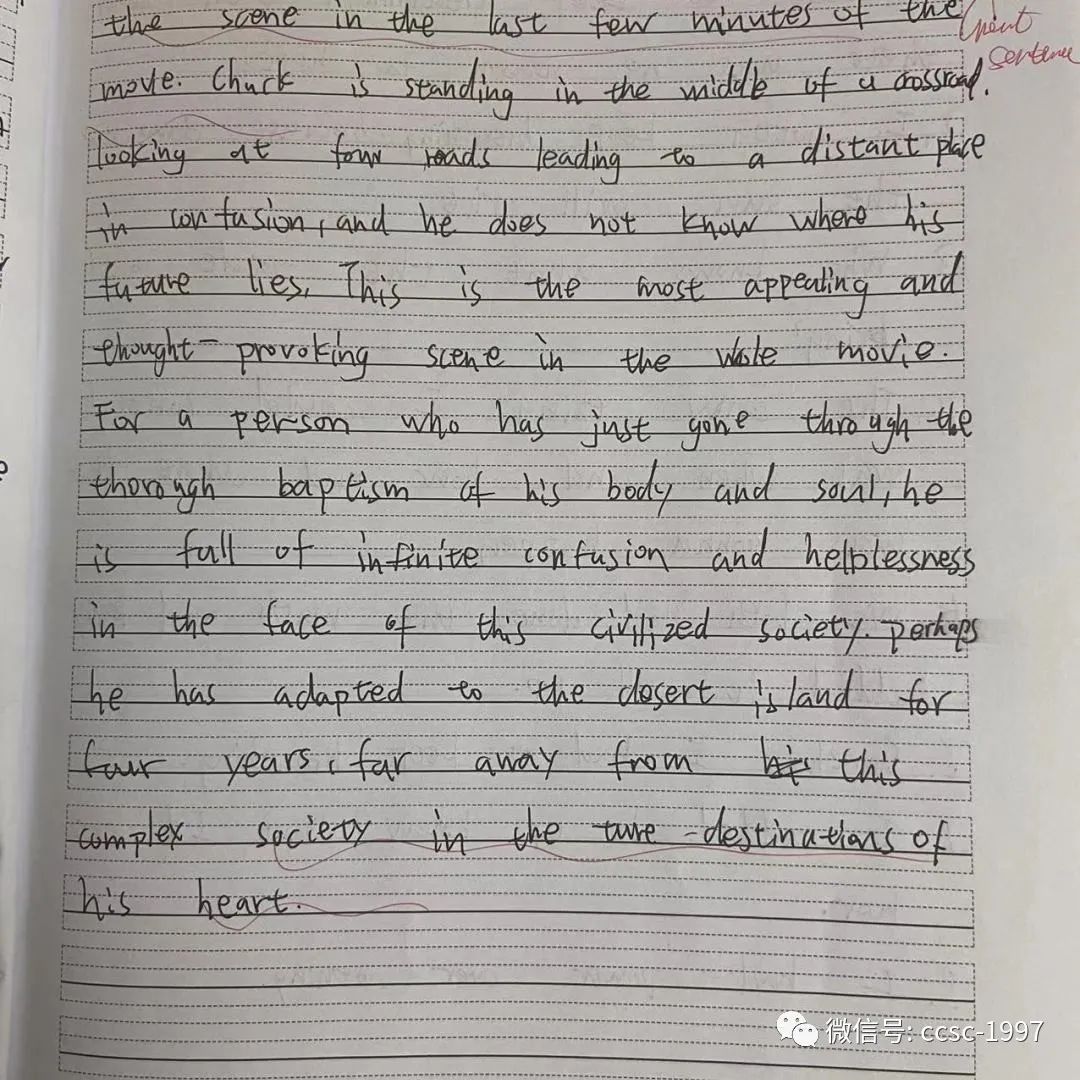 the scene in the last few minutes of the
sentence
move. Chuck is standing in the middle of a crossroad.
looking at four roads leading to a distant place
in confusion, and he does not know where his
future lies. This is the most appealing and
thought-provoking scene in the whole movie.
For a person who has just gone through the
thorough baptism of his body and soul, he
is full of infinite confusion and helplessness
in the face of this civilized society. perhaps
he has adapted to the desert island for
four years, far away from his this
complex society in the ture destinations of
his heart.
微信号: ccsc-1997